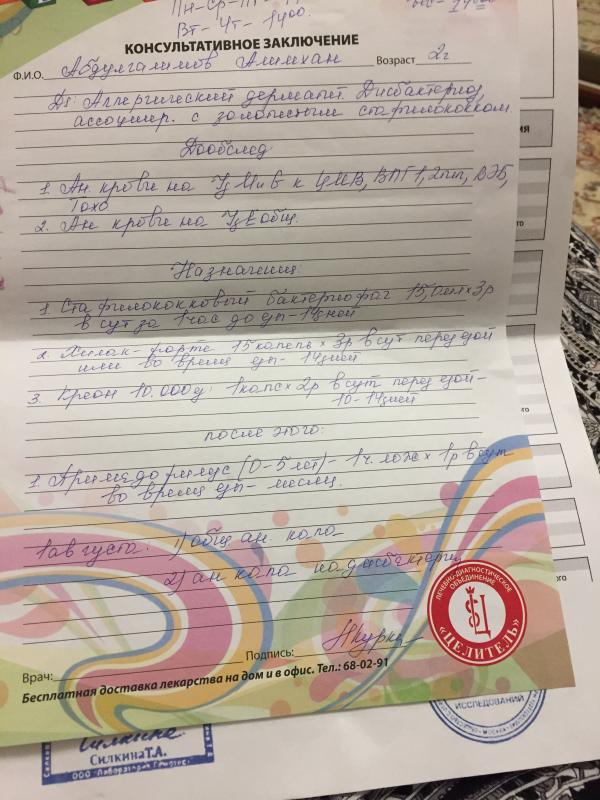 Пн-Ср-Пт-
Вт-Чт-1400.
КОНСУЛЬТАТИВНОЕ ЗАКЛЮЧЕНИЕ
Ф.И.О. Абдулгалимов Алимхан Возраст 2г
Ds: Аллергический дерматит. Дисбактериоз,
ассоциир. с золотистым стафилококком.
Дообслед
1. Ан. крови на к ЦМВ, ВПГ 1,2тип, ВЭБ,
Токсо
2. Ан крови на общ.
Назначения:
1. Стафилококковый бактериофаг 15,0мл×3р
в сут за 1час до еды-14дней
2. Хилак-форте 15капель×3р в сут перед едой
или во время еды-14дней
3. Креон 10.000ед: 1капс×2р в сут перед едой-
10-14дней
после этого:
1. (0-5лет)-1ч. лож×1р в сут
во время еды- месяц.
1августа. 1) общ ан. кала
2) ан кала на дисбактери
Врач: Подпись:
Бесплатная доставка лекарства на дом и в офис. Тел.: 68-02-91
ЛЕЧЕБНО-ДИАГНОСТИЧЕСКОЕ
ОБЪЕДИНЕНИЕ
«ЦЕЛИТЕЛЬ»
Силкина Т.А.
ИССЛЕДОВАНИЙ